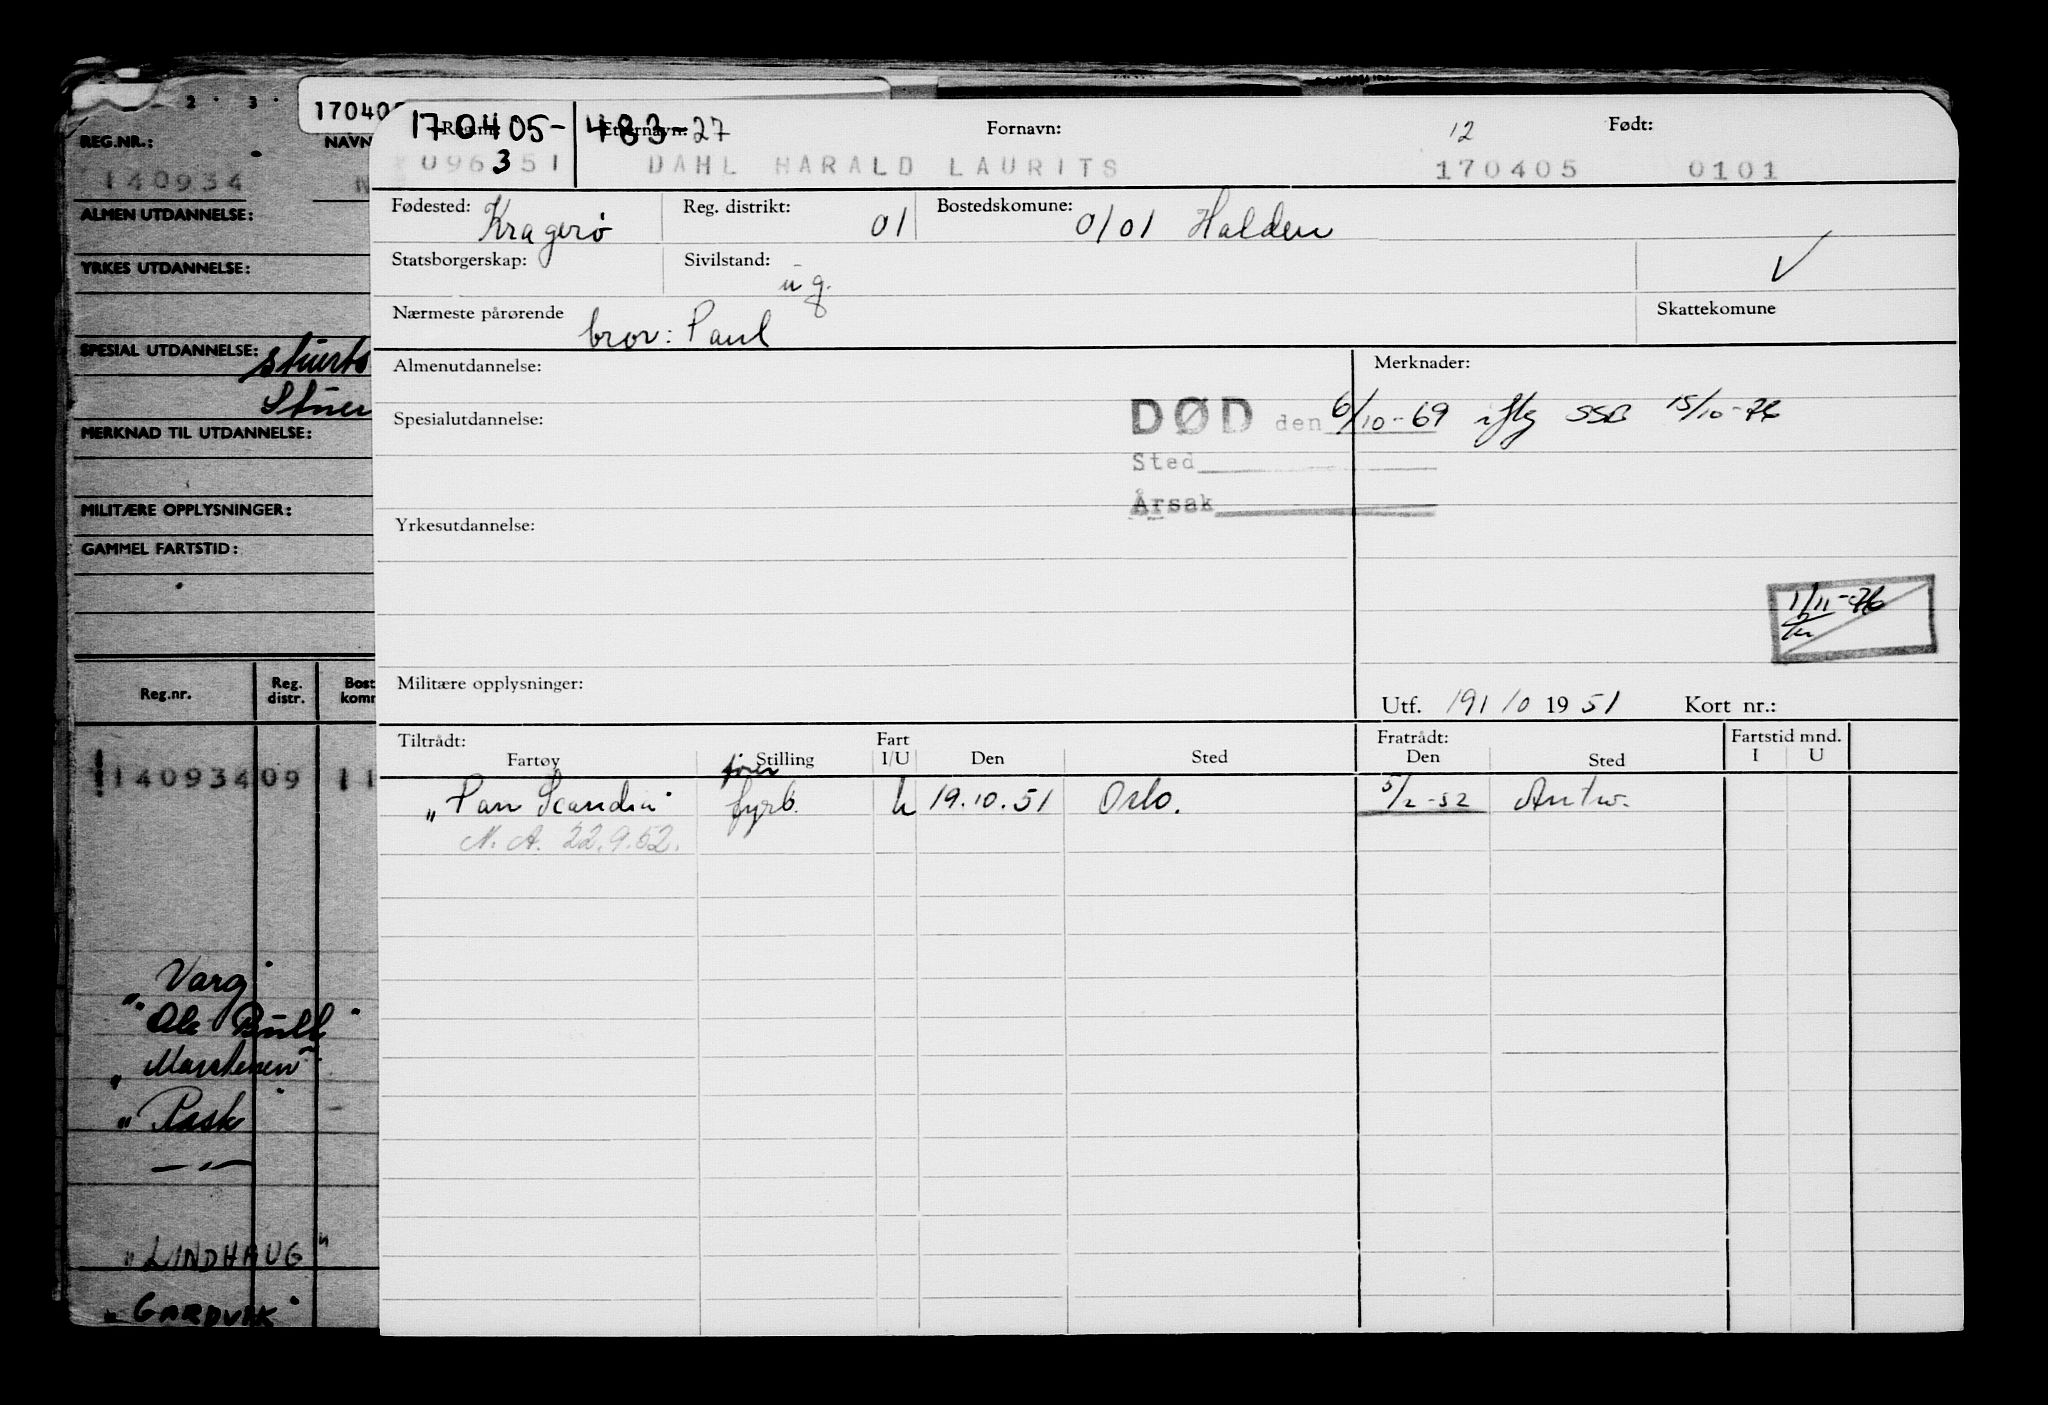 2 . 3 .
REG.NR.:
NAVN
140934
ALMEN UTDANNELSE:
YRKES UTDANNELSE:
SPESIAL UTDANNELSE:
MERKNAD TIL UTDANNELSE:
MILITÆRE OPPLYSNINGER:
GAMMEL FARTSTID:
Reg.nr.
Reg. distr.
14093409
"Varg"
"Ole Bull"
"Rask"
— " —
"LINDHAUG"
"GARDVIK"
170405-48327
3
Fornavn:
12
Født:
DAHL HARALD LAURITS
170405 0101
Fødested: Kragerø
Reg. distrikt: 01
Bostedskomune: 0101 Halden
Statsborgerskap:
Sivilstand: ug.
Nærmeste pårørende bror: Paul
Skattekomune
Almenutdannelse:
Merknader:
Spesialutdannelse:
DØD den 6/10-69 iflg SSB 15/10-76
Sted
Årsak
Yrkesutdannelse:
1/11-76
Militære opplysninger:
Utf. 19/10 1951 Kort nr.:
Tiltrådt:
Fart
Fratrådt:
Fartstid mnd.
Fartøy Stilling I/U Den Sted Den Sted I U
"Pan Scandia" fyrb. u 19.10.51 Oslo. 5/2-52 Antw.
N. A. 22.9.52.